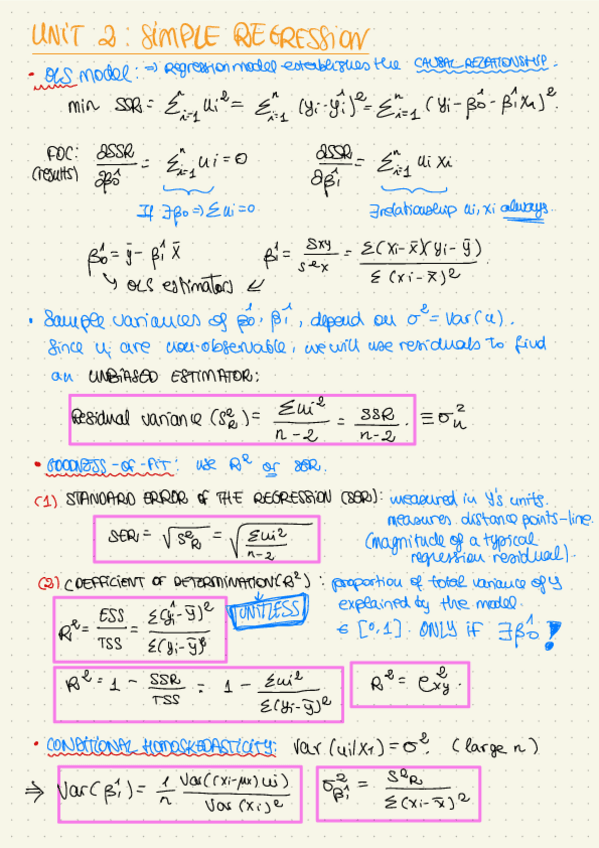 UNIT 2: SIMPLE REGRESSION
• OLS model: ⇒ Regression model establishes the CAUSAL RELATIONSHIP.
min SSR = Σⁿᵢ₌₁ ûi² = Σⁿᵢ₌₁ (yi - ŷi)² = Σⁿᵢ₌₁ (yi - β̂0 - β̂1 xi)².
FOC: (results) ∂SSR/∂β̂0 = Σⁿᵢ₌₁ ûi = 0 ∂SSR/∂β̂1 = Σⁿᵢ₌₁ ûi xi
If ∃β0 ⇒ Σûi = 0 ∃relationship ui, xi always.
β̂0 = ȳ - β̂1 x̄ β̂1 = Sxy/S²x = Σ(xi - x̄)(yi - ȳ)/Σ(xi - x̄)²
↳ OLS estimators ↙
• Sample variances of β̂0, β̂1, depend on σ² = Var(u).
Since ui are non-observable, we will use residuals to find
an UNBIASED ESTIMATOR:
Residual variance (S²R) = Σûi²/n-2 = SSR/n-2. ≡ σ²u
• GOODNESS-OF-FIT: use R² or SER.
(1) STANDARD ERROR OF THE REGRESSION (SER): measured in Y's units.
measures distance points-line.
(magnitude of a typical
regression residual).
SER = √S²R = √(Σûi²/n-2)
(2) COEFFICIENT OF DETERMINATION (R²): proportion of total variance of y
explained by the model.
UNITLESS
∈ [0,1]. ONLY if ∃β̂0!
R² = ESS/TSS = Σ(ŷi - ȳ)²/Σ(yi - ȳ)²
R² = 1 - SSR/TSS = 1 - Σûi²/Σ(yi - ȳ)² R² = ρ²xy.
• CONDITIONAL HOMOSKEDASTICITY: Var(ui/X1) = σ². (large n)
⇒ Var(β̂1) = 1/n Var((xi - μx)ui)/Var(xi)² σ²β̂1 = S²R/Σ(xi - x̄)²